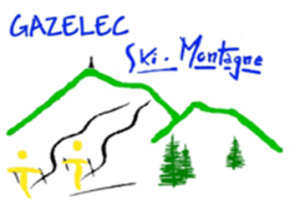 GAZELEC
Ski. Montagne